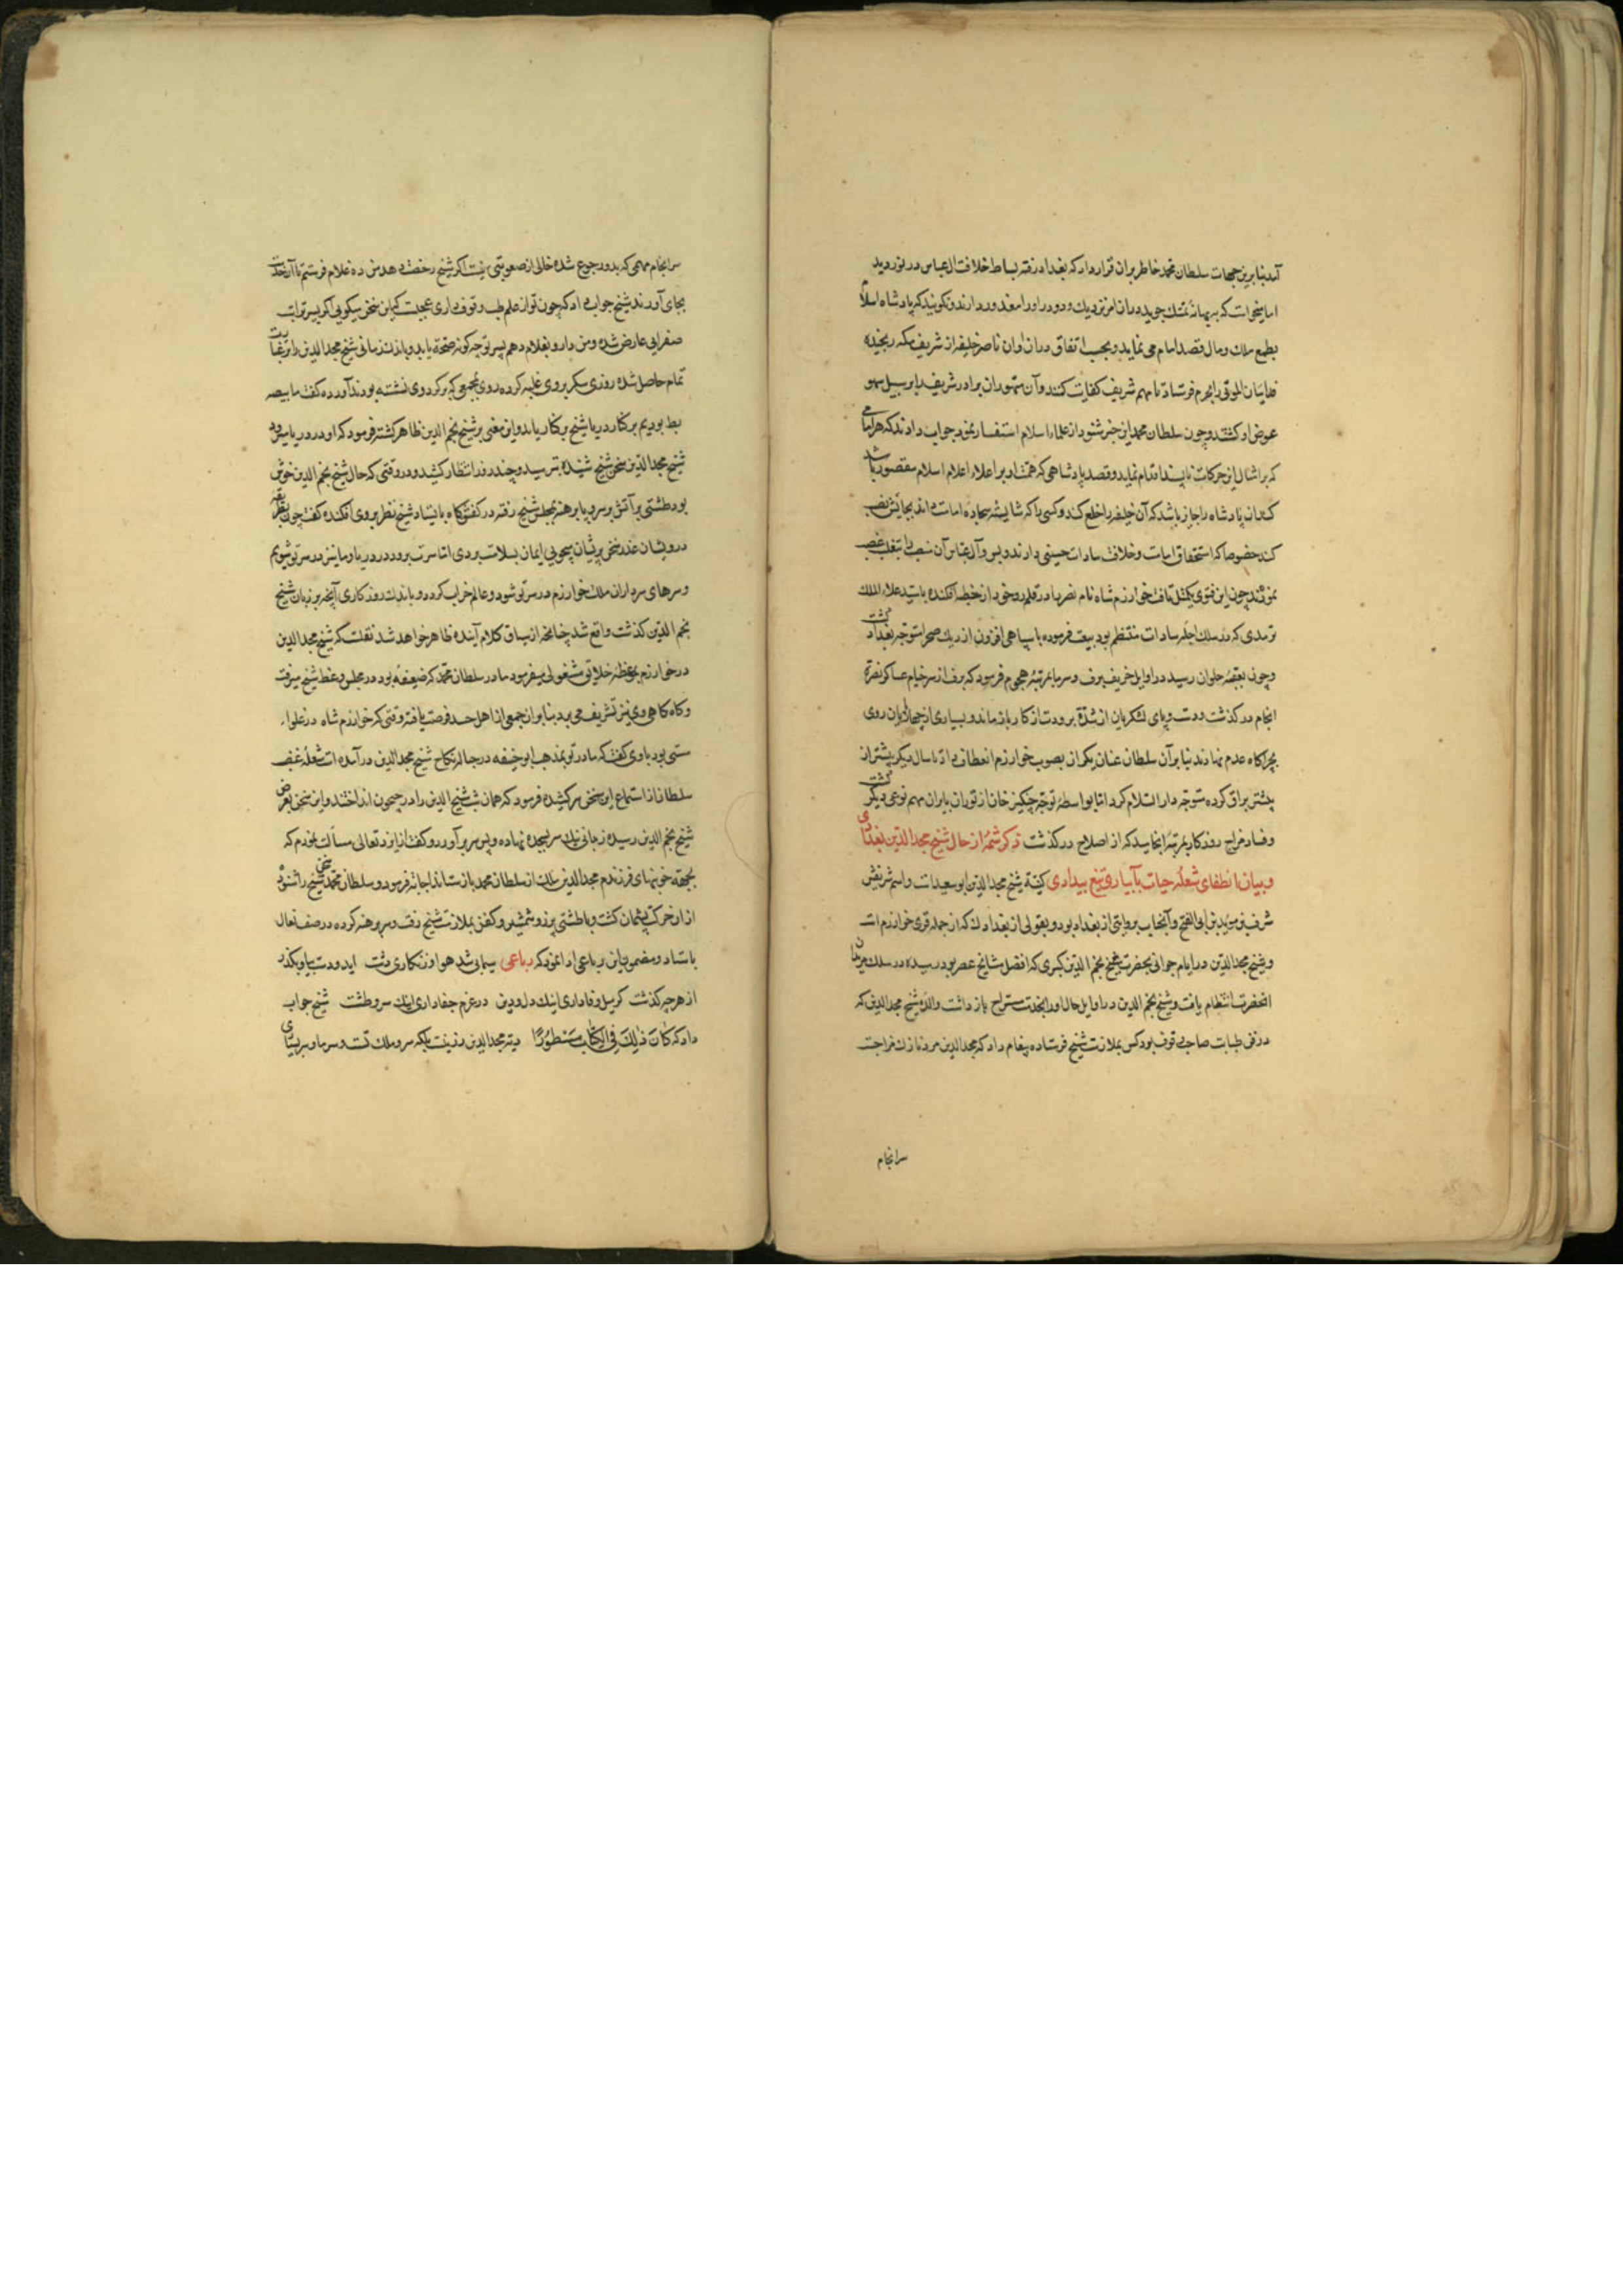 آمد بنا برین جهات سلطان محمد خاطر بران قرار داد که ببغداد رفته بساط خلافت ال عباس در نوردد
اما میخواست که به بهانه تمسک جوید دران امر نزدیک و دور او را معذور دارند و نکویند که پادشاه اسلام
بطمع ملک و مال قصد امام می نماید و بحسب اتفاق دران اوان ناصر خلیفه از شریف مکه رنجیده
فداییان الموتی را بحرم فرستاد تا مهم شریف کفایت کنند و آن متهوران برادر شریف را بر سبیل سهو
عوض او کشتند و چون سلطان محمد این خبر شنود از علماء اسلام استفسار نمود جواب دادند که هر امامی
که بر امثال این حرکات ناپسند اقدام نماید و قصد پادشاهی که همت او بر اعلاء اعلام اسلام مقصور باشد
کند ان پادشاه را جایز باشد که آن خلیفه را خلع کند و کسی را که شایسته سجاده امامت داند بجایش نصب
کند خصوصا که استحقاق امامت و خلافت سادات حسینی دارند و بس و آل عباس آن منصب را بتغلب غصب
نمودند چون این فتوی بکمثل یافت خوارزم شاه نام ناصر را در قلمرو خود از خطبه افکنده با سید علاء الملک
ترمدی که در سلک اجله سادات منتظم بود بیعت فرموده با سپاهی افزون از ریک صحرا متوجه بغداد کشت
و چون بعقبه حلوان رسید در اوایل خریف برف و سرما بمرتبه هجوم فرمود که برف از سر خیام عساکر نصرة
انجام در کذشت و دست و پای لشکریان از شدة برودت از کار باز ماند و بسیاری از چهارپایان روی
بچراکاه عدم نهادند بنا بر آن سلطان عنان یکران بصوب خوارزم انعطاف داد تا سال دیکر پیشتر از
پیشتر یراق کرده متوجه دار السلام کردد اما بواسطه توجه چنکیز خان از توران بایران مهم نوعی دیکر کشت
و فساد مزاج روزکار بمرتبه انجامید که از اصلاح در کذشت ذکر شمه از حال شیخ مجد الدین بغدادی
و بیان انطفای شعله حیات بآبیاری تیغ بیدادی کنیة شیخ مجد الدین ابو سعیدست و اسم شریفش
شرف بن موید بن ابی الفتح و آنجناب بروایتی از بغداد بود و بقولی از بغدادک که از جمله قری خوارزم است
و شیخ مجد الدین در ایام جوانی بحضرت شیخ نجم الدین کبری که افضل مشایخ عصر بود رسیده در سلک مریدان
انحضرت انتظام یافت و شیخ نجم الدین در اوایل حال او را بخدمت مستراح باز داشت والده شیخ مجد الدین که
در فن طبابت صاحب وقوف بود کس بملازمت شیخ فرستاده پیغام داد که مجد الدین مرد نازک مزاجست
سرانجام
سرانجام مهمی که بدو رجوع شده خالی از صعوبتی نیست اکر شیخ رخصت دهد من ده غلام فرستم تا آن خدمت
بجای آورند شیخ جواب داد که چون تو از علم طب وقوف داری عجبست که این سخن میکویی اکر پسر ترا تب
صفرایی عارض شده و من دارو بغلام دهم پسر تو چه کونه صحة یابد و باندک زمانی شیخ مجد الدین را ترقیات
تمام حاصل شده روزی سکر بر وی غلبه کرده روی بجمعی که بر کرد وی نشسته بودند آورده کفت ما بیضه
بط بودیم بر کنار دریا شیخ بر کنار ماند و این معنی بر شیخ نجم الدین ظاهر کشته فرمود که او در دریا میرود
شیخ مجد الدین سخن شیخ شنیده بترسید و چند روز انتظار کشید و در وقتی که حال شیخ نجم الدین خوش
بود طشتی پر آتش بر سر و پا برهنه بمجلس شیخ رفته در کفش کاه بایستاد شیخ نظر بر وی افکنده کفت چون بطریقه
درویشان عذر سخن پریشان میجویی ایمان بسلامت بردی اما سرت برود در دریا و ما نیز در سر تو شویم
و سرهای سرداران ملک خوارزم در سر تو شود و عالم خراب کردد و باندک روزکاری آنچه بر زبان شیخ
نجم الدین کذشت واقع شد چنانچه از سیاق کلام آینده ظاهر خواهد شد نقلست که شیخ مجد الدین
در خوارزم بموعظه خلایق مشغولی میفرمود مادر سلطان محمد که ضعیفه بود در مجلس وعظ شیخ میرفت
و کاه کاهی وی نیز تشریف می برد بنا بران جمعی از اهل حسد فرصت یافته وقتی که خوارزم شاه در غلواء
مستی بود با وی کفتند که مادر تو بمذهب ابو حنیفه در حباله نکاح شیخ مجد الدین در آمده است شعله غضب
سلطان از استماع این سخن سر کشیده فرمود که همان شب شیخ الدین را در جیحون انداختند و این سخن بعرض
شیخ نجم الدین رسیده زمانی نیک سر بسجده نهاده و پس سر بر آورد و کفت از ایزد تعالی مسألت نمودم که
بجهة خونبهای فرزندم مجد الدین ملک از سلطان محمد باز ستاند اجابة فرمود و سلطان محمد سخن شیخ را شنوده
از ان حرکت پشیمان کشت و با طشتی پر زر و شمشیر و کفن بملازمت شیخ رفت و سر برهنه کرده در صف نعال
باستاد و مضمون این رباعی ادا نمود که رباعی سیمابی شد هوا و زنکاری دشت ای دوست بیا و بکذر
از هرچه کذشت کر میل وفا داری اینک دل و دین در عزم جفا داری اینک سر و طشت شیخ جواب
داد که كَانَ ذٰلِكَ فِي الْكِتَابِ مَسْطُورًا دیة مجد الدین زر نیست بلکه سر و ملک تست و سر ما و سر بسیاری